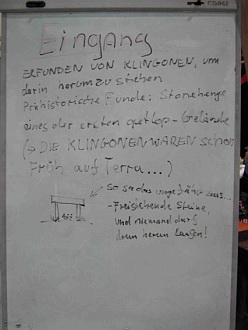 Eingang
ERFUNDEN VON KLINGONEN, um
darin herumzustehen
Prähistorische Funde: Stonehenge
eines der ersten qetlop-Gelände
(→ DIE KLINGONEN WAREN SCHON
FRÜH auf Terra...)
So sah das ungefähr aus...
- Freistehende Steine,
und niemand darf
drum herum laufen!